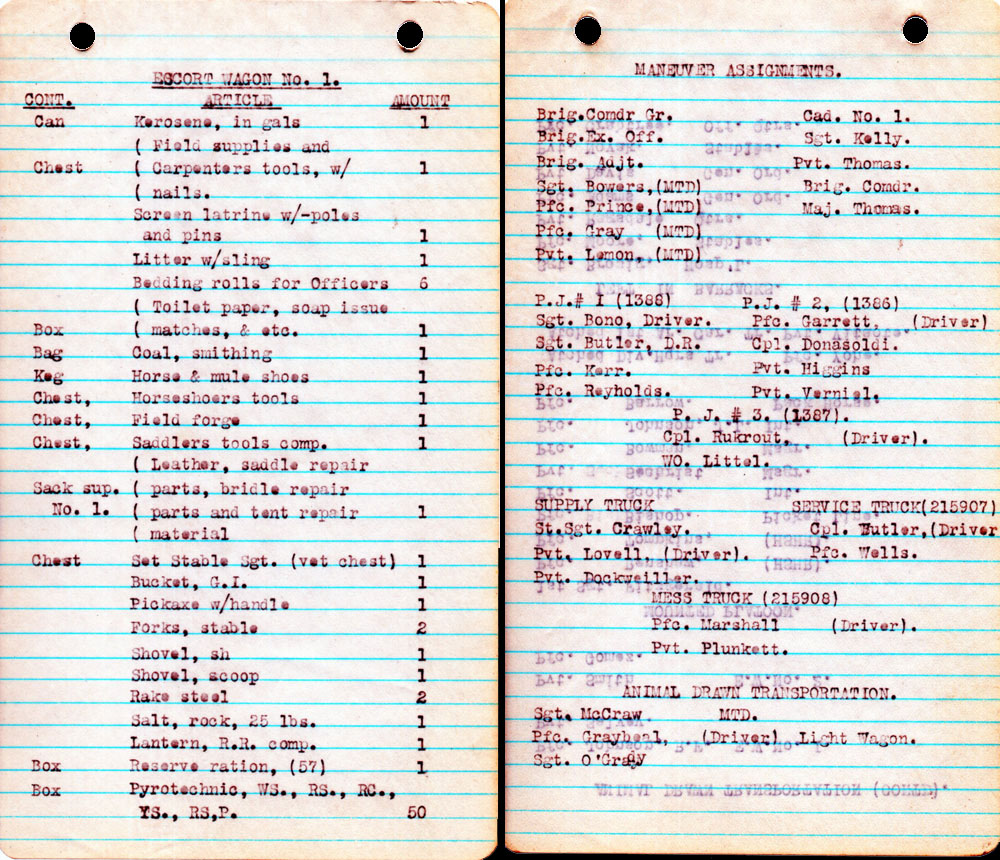 ESCORT WAGON No. 1.
CONT. ARTICLE AMOUNT
Can Kerosene, in gals 1
( Field supplies and
Chest ( Carpenters tools, w/ 1
( nails.
Screen latrine w/-poles
and pins 1
Litter w/sling 1
Bedding rolls for Officers 6
( Toilet paper, soap issue
Box ( matches, & etc. 1
Bag Coal, smithing 1
Keg Horse & mule shoes 1
Chest, Horseshoers tools 1
Chest, Field forge 1
Chest, Saddlers tools comp. 1
( Leather, saddle repair
Sack sup. ( parts, bridle repair
No. 1. ( parts and tent repair 1
( material
Chest Set Stable Sgt. (vet chest) 1
Bucket, G.I. 1
Pickaxe w/handle 1
Forks, stable 2
Shovel, sh 1
Shovel, scoop 1
Rake steel 2
Salt, rock, 25 lbs. 1
Lantern, R.R. comp. 1
Box Reserve ration, (57) 1
Box Pyrotechnic, WS., RS., RC.,
YS., RS,P. 50
MANEUVER ASSIGNMENTS.
Brig.Comdr Gr. Cad. No. 1.
Brig.Ex. Off. Sgt. Kelly.
Brig. Adjt. Pvt. Thomas.
Sgt. Bowers,(MTD) Brig. Comdr.
Pfc. Prince,(MTD) Maj. Thomas.
Pfc. Gray (MTD)
Pvt. Lemon, (MTD)
P.J.# I (1388) P.J. # 2, (1386)
Sgt. Bono, Driver. Pfc. Garrett, (Driver)
Sgt. Butler, D.R. Cpl. Donasoldi.
Pfc. Kerr. Pvt. Higgins
Pfc. Reyholds. Pvt. Verniel.
P. J. # 3. (1387).
Cpl. Rukrout, (Driver).
WO. Littel.
SUPPLY TRUCK SERVICE TRUCK(215907)
St.Sgt. Crawley. Cpl. Butler,(Driver
Pvt. Lovell, (Driver). Pfc. Wells.
Pvt. Dockweiller.
MESS TRUCK (215908)
Pfc. Marshall (Driver).
Pvt. Plunkett.
ANIMAL DRAWN TRANSPORTATION.
Sgt. McCraw MTD.
Pfc. Graybeal, (Driver) Light Wagon.
Sgt. O'Gray